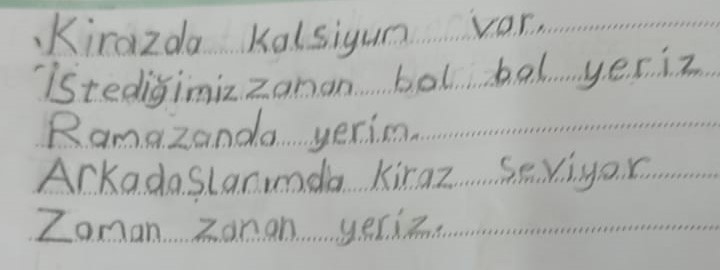 Kirazda kalsiyum var.
İstediğimiz zaman bol bol yeriz
Ramazanda yerim.
Arkadaşlarımda kiraz seviyor
Zaman zaman yeriz.